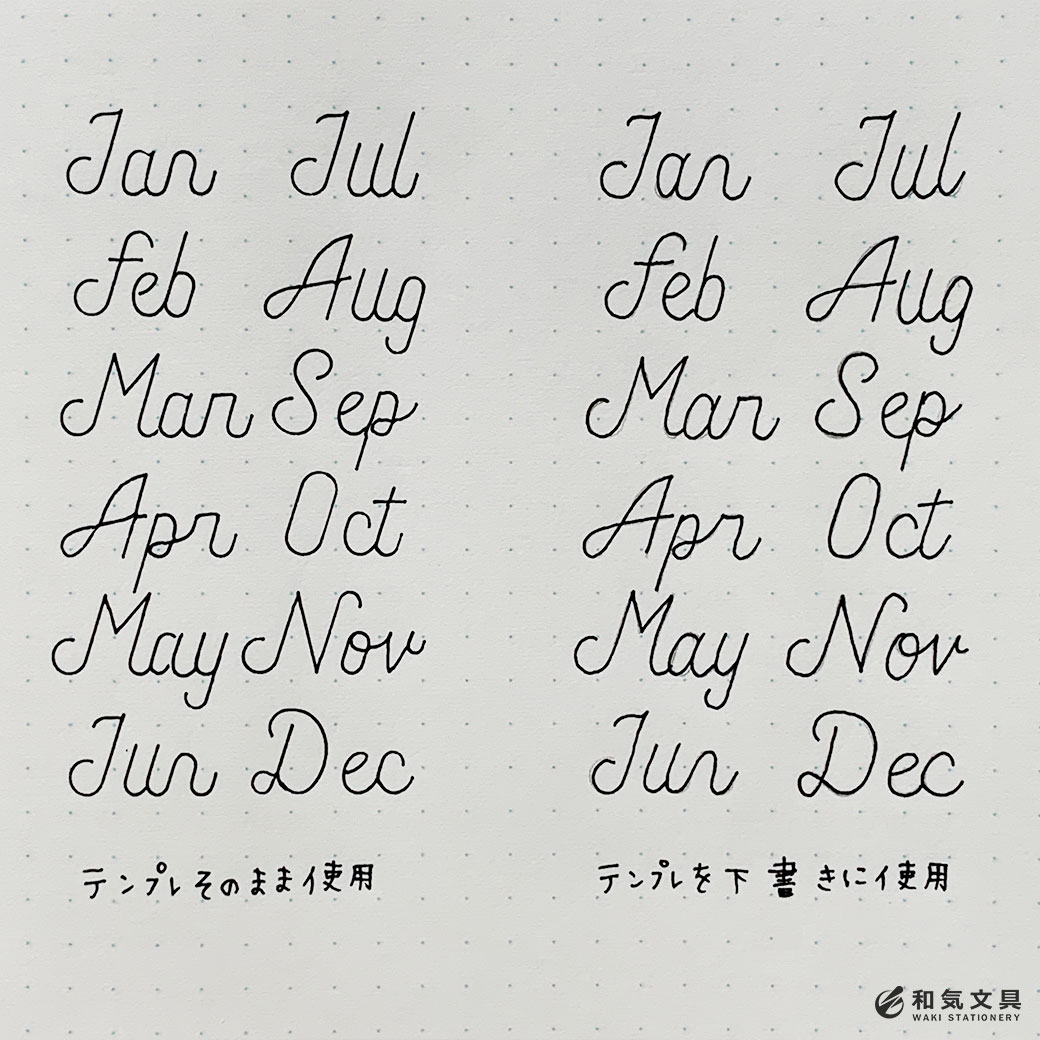 Jan Jul
Feb Aug
Mar Sep
Apr Oct
May Nov
Jun Dec
テンプレそのまま使用
Jan Jul
Feb Aug
Mar Sep
Apr Oct
May Nov
Jun Dec
テンプレを下書きに使用
和気文具
WAKI STATIONERY